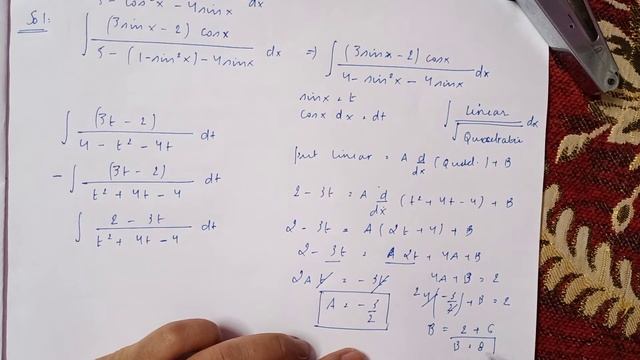 5 - cos²x - 4sinx dx
Sol:
∫ (3sinx - 2) cosx / 5 - (1-sin²x) - 4sinx dx ⇒ ∫ (3sinx - 2) cosx / 4 - sin²x - 4sinx dx
sinx = t
cosx dx = dt
∫ (3t - 2) / 4 - t² - 4t dt
- ∫ (3t - 2) / t² + 4t - 4 dt
∫ 2 - 3t / t² + 4t - 4 dt
∫ Linear / √Quadratic dx
put linear = A d/dx (Quad.) + B
2 - 3t = A d/dx (t² + 4t - 4) + B
2 - 3t = A (2t + 4) + B
2 - 3t = A 2t + 4A + B
2A t = - 3t
A = - 3/2
4A + B = 2
2 4 (-3/2) + B = 2
B = 2 + 6
B = 8